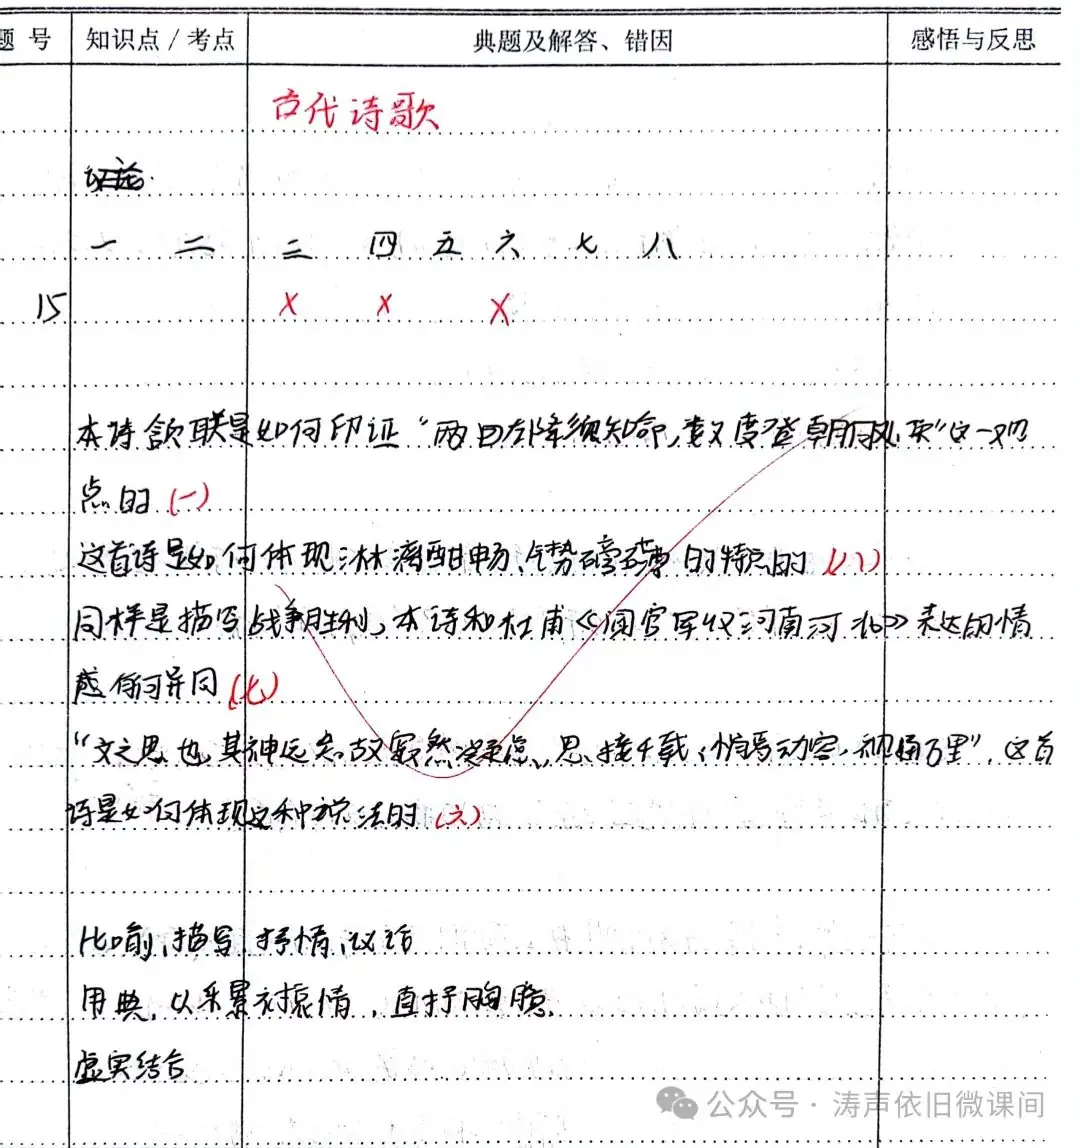 题 号 知识点 / 考点 典题及解答、错因 感悟与反思
古代诗歌
一 二 三 四 五 六 七 八
15 × × ×
本诗颔联是如何印证“两曰须知命,数度登朝”这一观
点的(一)
这首诗是如何体现淋漓酣畅、气势磅礴的特点的(八)
同样是描写战争胜利,本诗和杜甫《闻官军收河南河北》表达的情
感有何异同(七)
“文之思也,其神远矣。故寂然凝虑,思接千载,悄焉动容,视通万里”,这首
诗是如何体现这种说法的(六)
比喻,描写,抒情,议论
用典,以乐景衬哀情,直抒胸臆,
虚实结合
公众号 · 涛声依旧微课间